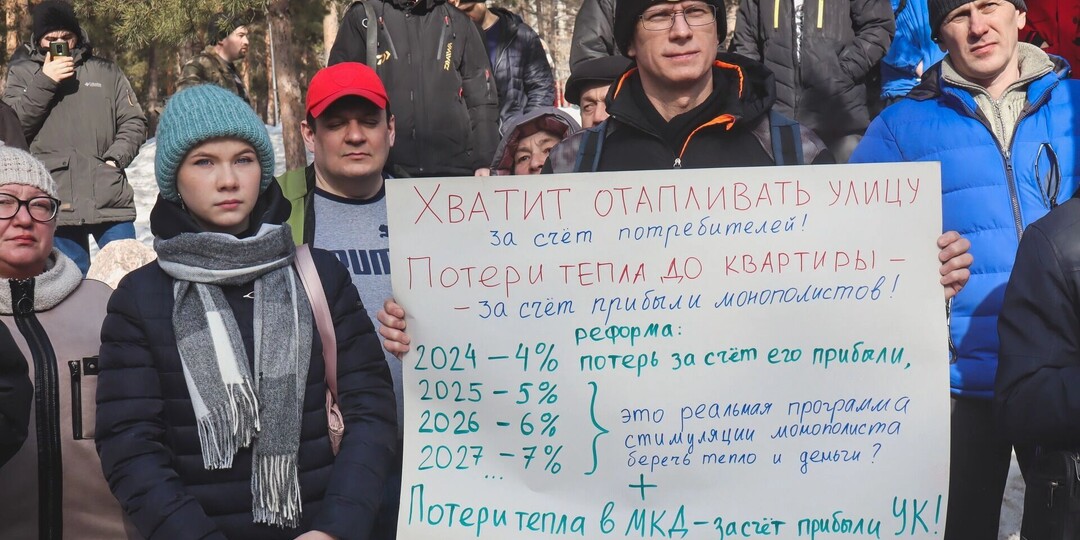 ХВАТИТ ОТАПЛИВАТЬ УЛИЦУ
за счёт потребителей!
Потери тепла до квартиры –
– за счёт прибыли монополистов!
реформа:
2024 – 4% потерь за счёт его прибыли,
2025 – 5%
2026 – 6%
2027 – 7%
...
это реальная программа
стимуляции монополиста
беречь тепло и деньги?
+
Потери тепла в МКД – за счёт прибыли УК!
PUMA
DAIWA
Columbia